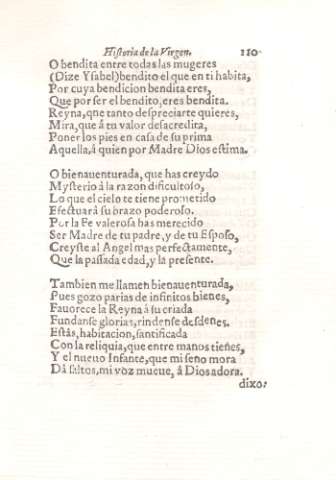 Historia de la Virgen. 110
O bendita entre todas las mugeres
(Dize Ysabel) bendito el que en ti habita,
Por cuya bendicion bendita eres,
Que por ser el bendito, eres bendita.
Reyna, que tanto despreciarte quieres,
Mira, que â tu valor desacredita,
Poner los pies en casa de su prima
Aquella, á quien por Madre Dios estima.
O bienauenturada, que has creydo
Mysterio à la razon dificultoso,
Lo que el cielo te tiene prometido
Efectuará su brazo poderoso.
Por la Fe valerosa has merecido
Ser Madre de tu padre, y de tu Esposo,
Creyste al Angel mas perfectamente,
Que la passada edad, y la presente.
Tambien me llamen bienauenturada,
Pues gozo parias de infinitos bienes,
Fauorece la Reyna á su criada
Fundanse glorias, rindense desdenes.
Estás, habitacion, santificada
Con la reliquia, que entre manos tienes,
Y el nueuo Infante, que mi seno mora
Dâ saltos, mi voz mueue, â Dios adora.
dixo: